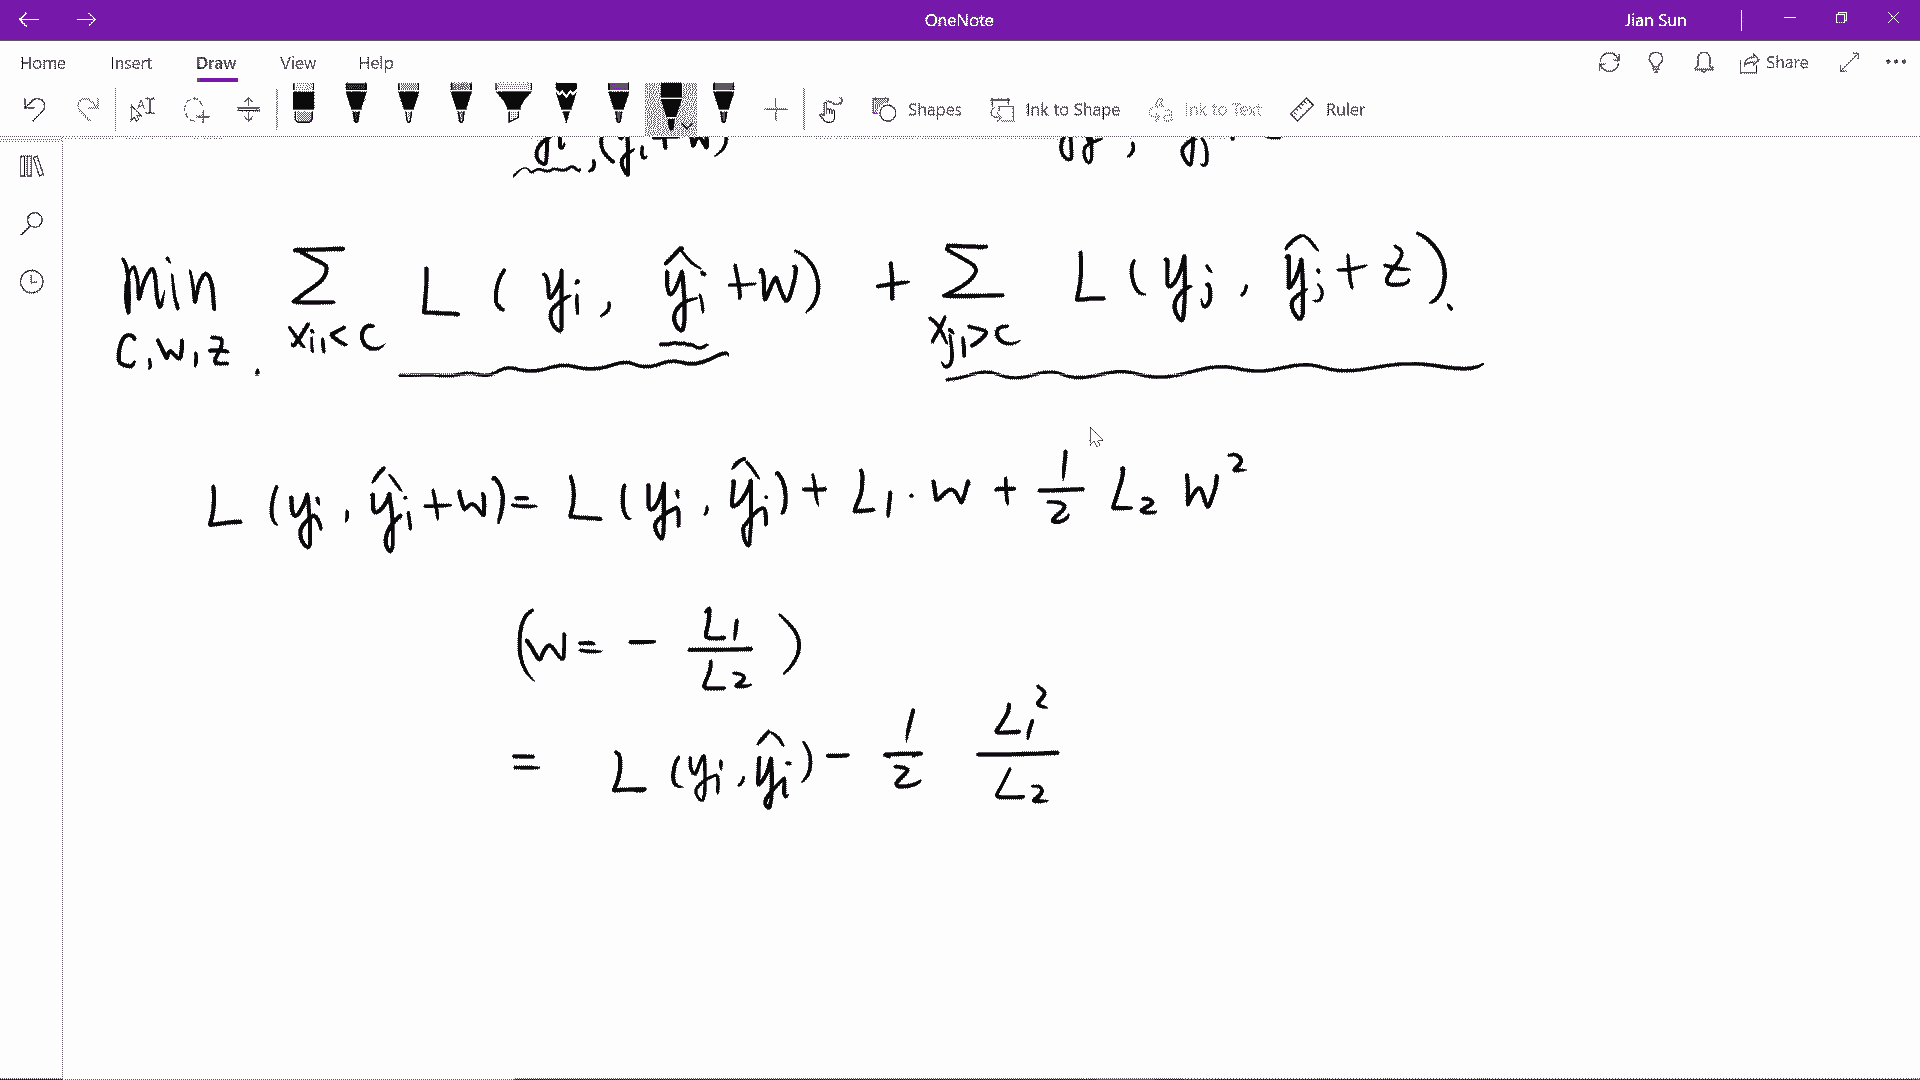 OneNote
Jian Sun
Home Insert Draw View Help
Share
Shapes Ink to Shape Ink to Text Ruler
min Σ L ( yi, ŷi + w) + Σ L ( yj , ŷj + z).
c, w, z . xi1 < c xj1 > c
L (yi , ŷi + w) = L (yi , ŷi) + L1 · w + 1/2 L2 w²
(w = - L1/L2 )
= L (yi, ŷi) - 1/2 L1²/L2